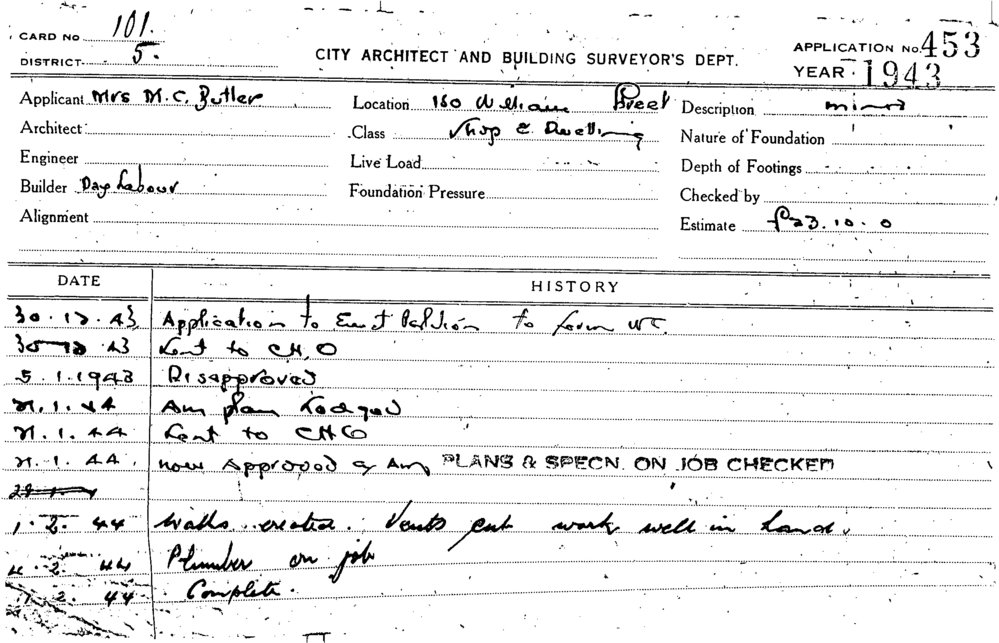 CARD No 101.
DISTRICT 5.
CITY ARCHITECT AND BUILDING SURVEYOR'S DEPT.
APPLICATION No. 453
YEAR 1943
Applicant Mrs M.C. Butler
Location 180 William Street
Description minor
Architect
Class Shop & Dwelling
Nature of Foundation
Engineer
Live Load
Depth of Footings
Builder Day Labour
Foundation Pressure
Checked by
Alignment
Estimate £23.10.0
DATE HISTORY
30.12.43 Application to Erect Partition to form WC.
30 12 43 Sent to CH,O
5.1.1943 Disapproved
21.1.44 Am plan Lodged
21.1.44 Sent to CHO
21.1.44. now Approved Am PLANS & SPECN. ON JOB CHECKED
1.2.44 Walls erected. Vents cut work well in hand.
4.2.44 Plumber on job
.2.44 Complete.